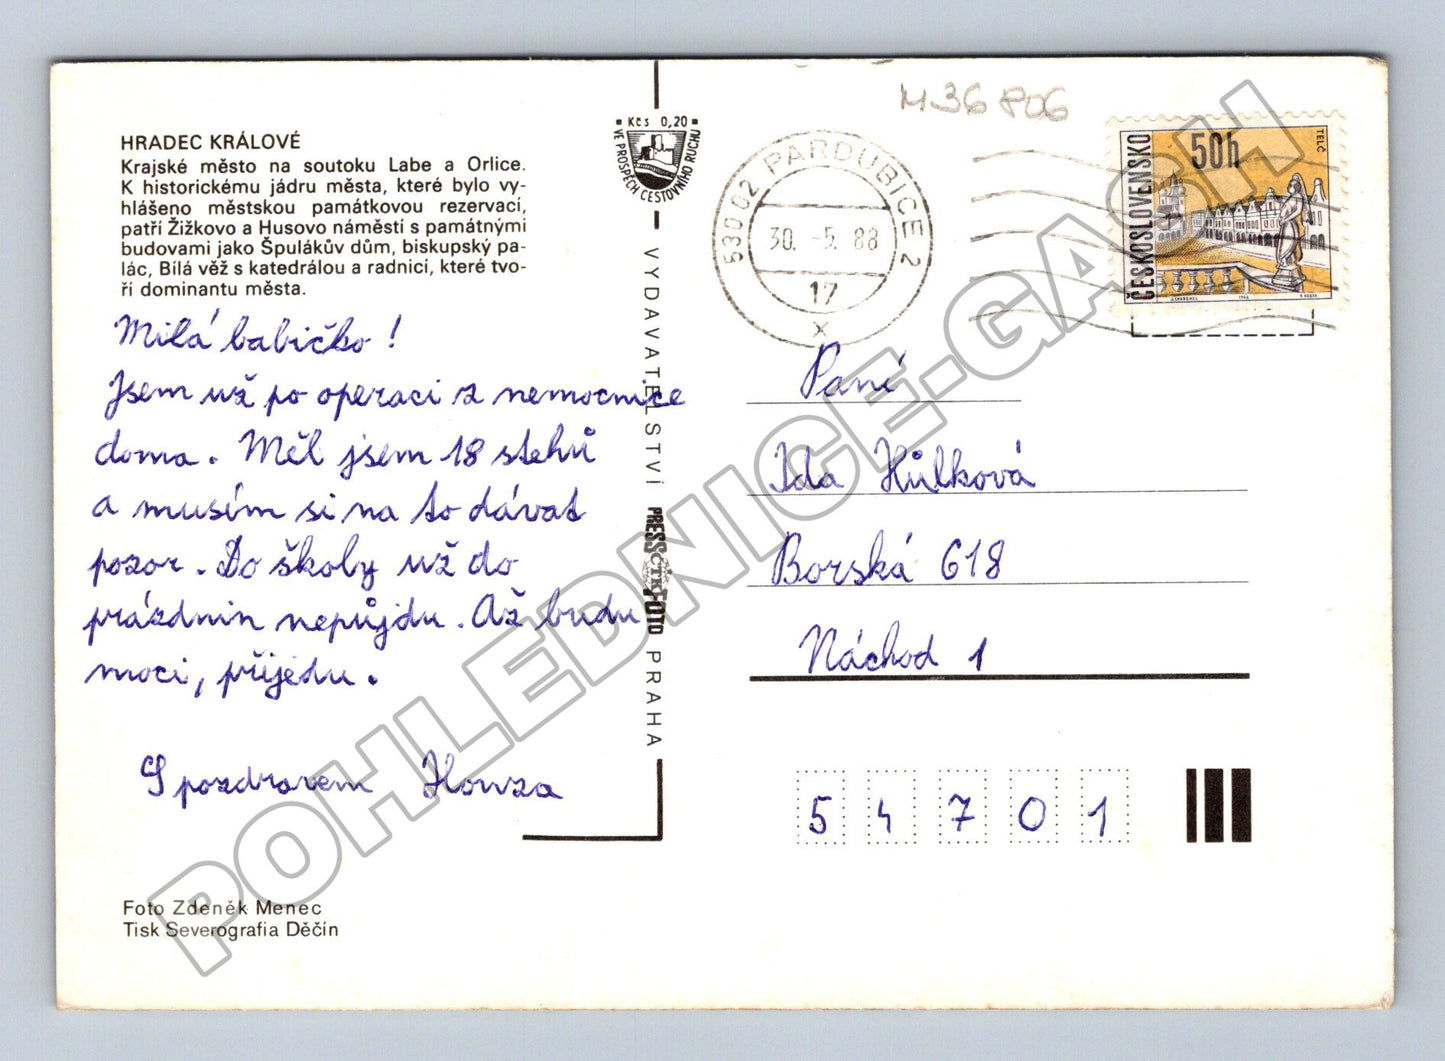 HRADEC KRÁLOVÉ
Krajské město na soutoku Labe a Orlice.
K historickému jádru města, které bylo vy-
hlášeno městskou památkovou rezervací,
patří Žižkovo a Husovo náměstí s památnými
budovami jako Špulákův dům, biskupský pa-
lác, Bílá věž s katedrálou a radnicí, které tvo-
ří dominantu města.
Milá babičko!
Jsem už po operaci z nemocnice
doma. Měl jsem 18 stehů
a musím si na to dávat
pozor. Do školy už do
prázdnin nepůjdu. Až budu
moci, přijedu.
S pozdravem Honza
Foto Zdeněk Menec
Tisk Severografia Děčín
Kčs 0,20
VE PROSPĚCH CESTOVNÍHO RUCHU
VYDAVATELSTVÍ PRESSFOTO PRAHA
ČTK
M36806
530 02 PARDUBICE 2
30. -5. 88
17
x
ČESKOSLOVENSKO
50h
TELČ
1966
Paní
Ida Hůlková
Borská 618
Náchod 1
54701
POHLEDNICE-GASH